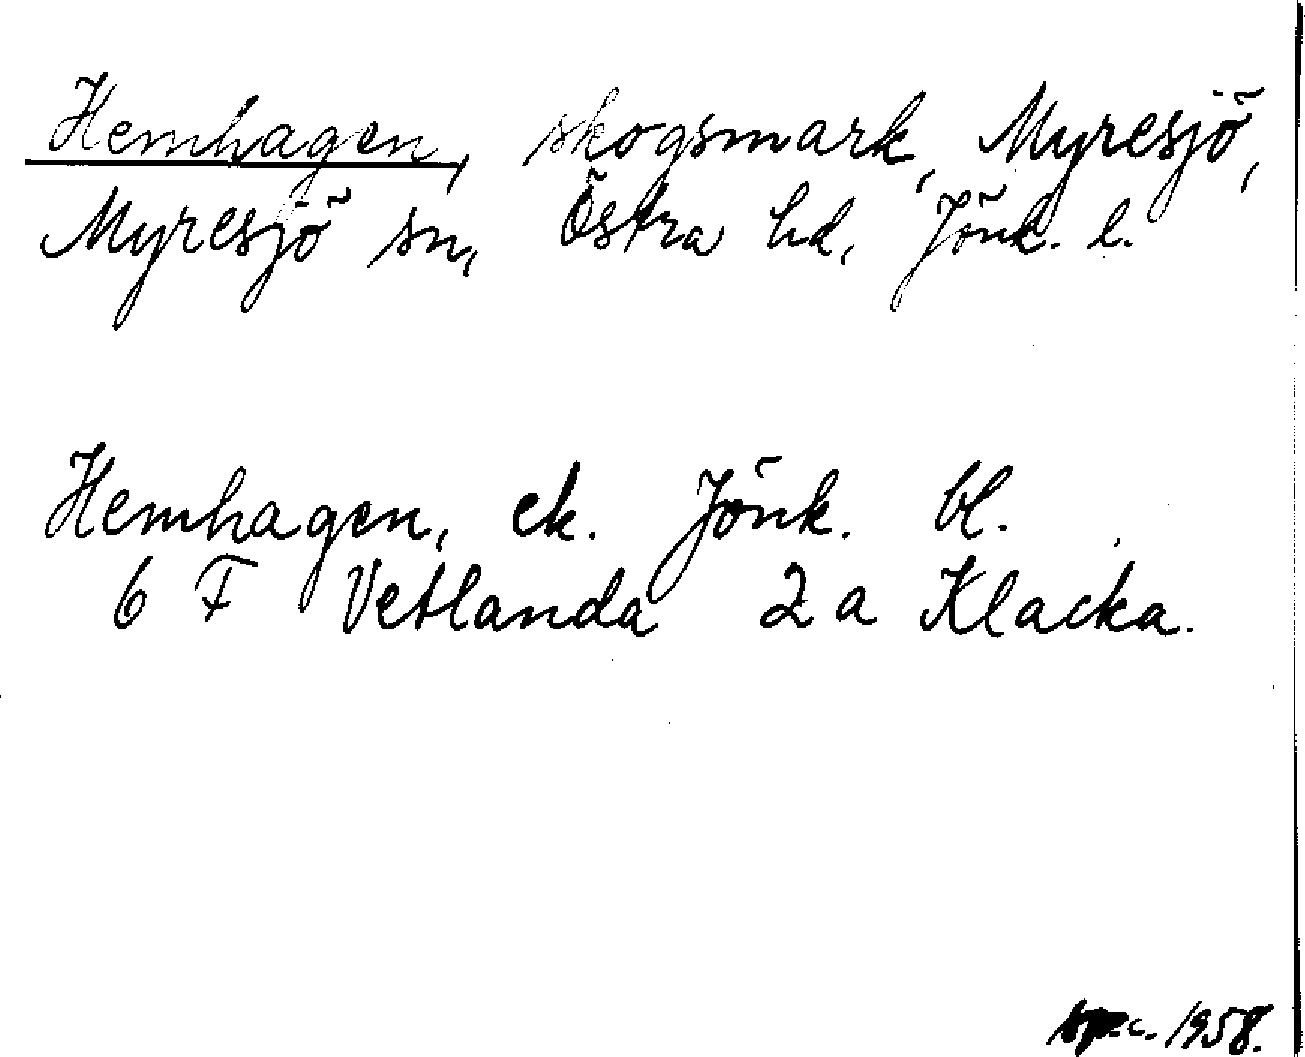 Hemhagen, skogsmark, Myresjö,
Myresjö sn, Östra hd, Jönk. l.
Hemhagen, ek. Jönk. bl.
6 F Vetlanda 2 a Klacka.
1958.